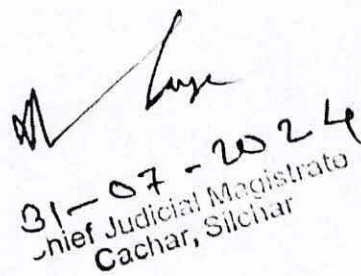 31-07-2024
Chief Judicial Magistrate
Cachar, Silchar